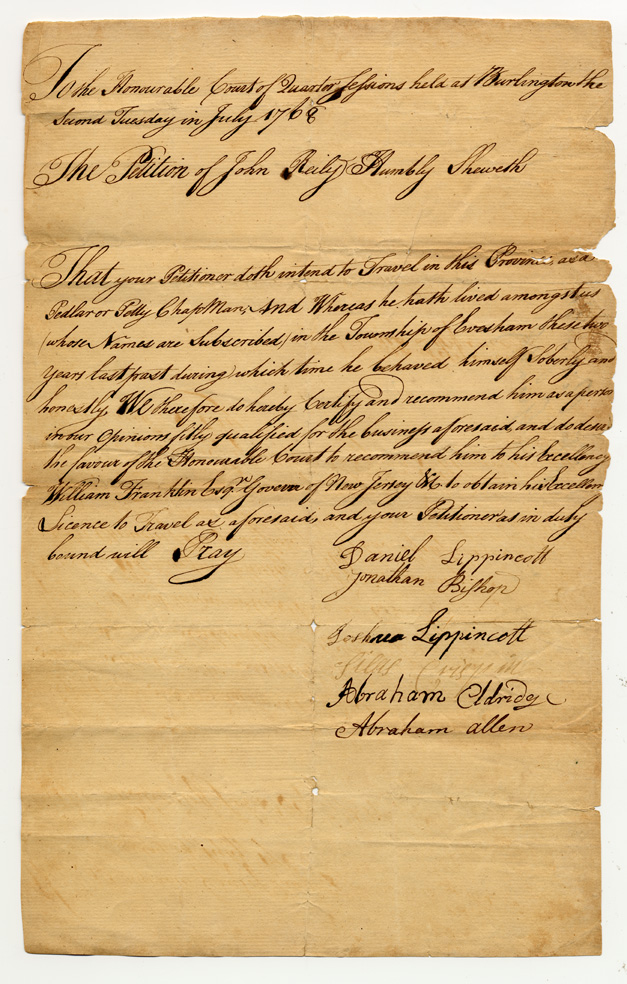 To the Honourable Court of Quarter Sessions held at Burlington the
Second Tuesday in July 1768
The Petition of John Reily Humbly Sheweth
That your Petitioner doth intend to Travel in this Province as a
Pedlar or Petty Chap Man, And Whereas he hath lived amongst us
(whose Names are Subscribed) in the Township of Evesham these two
years last past during which time he behaved himself Soberly and
honestly, We therefore do hereby Certify and recommend him as a person
in our Opinions fitly qualified for the business aforesaid and do desire
the favour of the Honourable Court to recommend him to his Excellency
William Franklin Esqr. Govern of New Jersey &c to obtain his Excellency
Licence to Travel as aforesaid, and your Petitioner as in duty
bound will Pray
Daniel Lippincott
Jonathan Bishop
Joshua Lippincott
Abraham Eldridge
Abraham allen